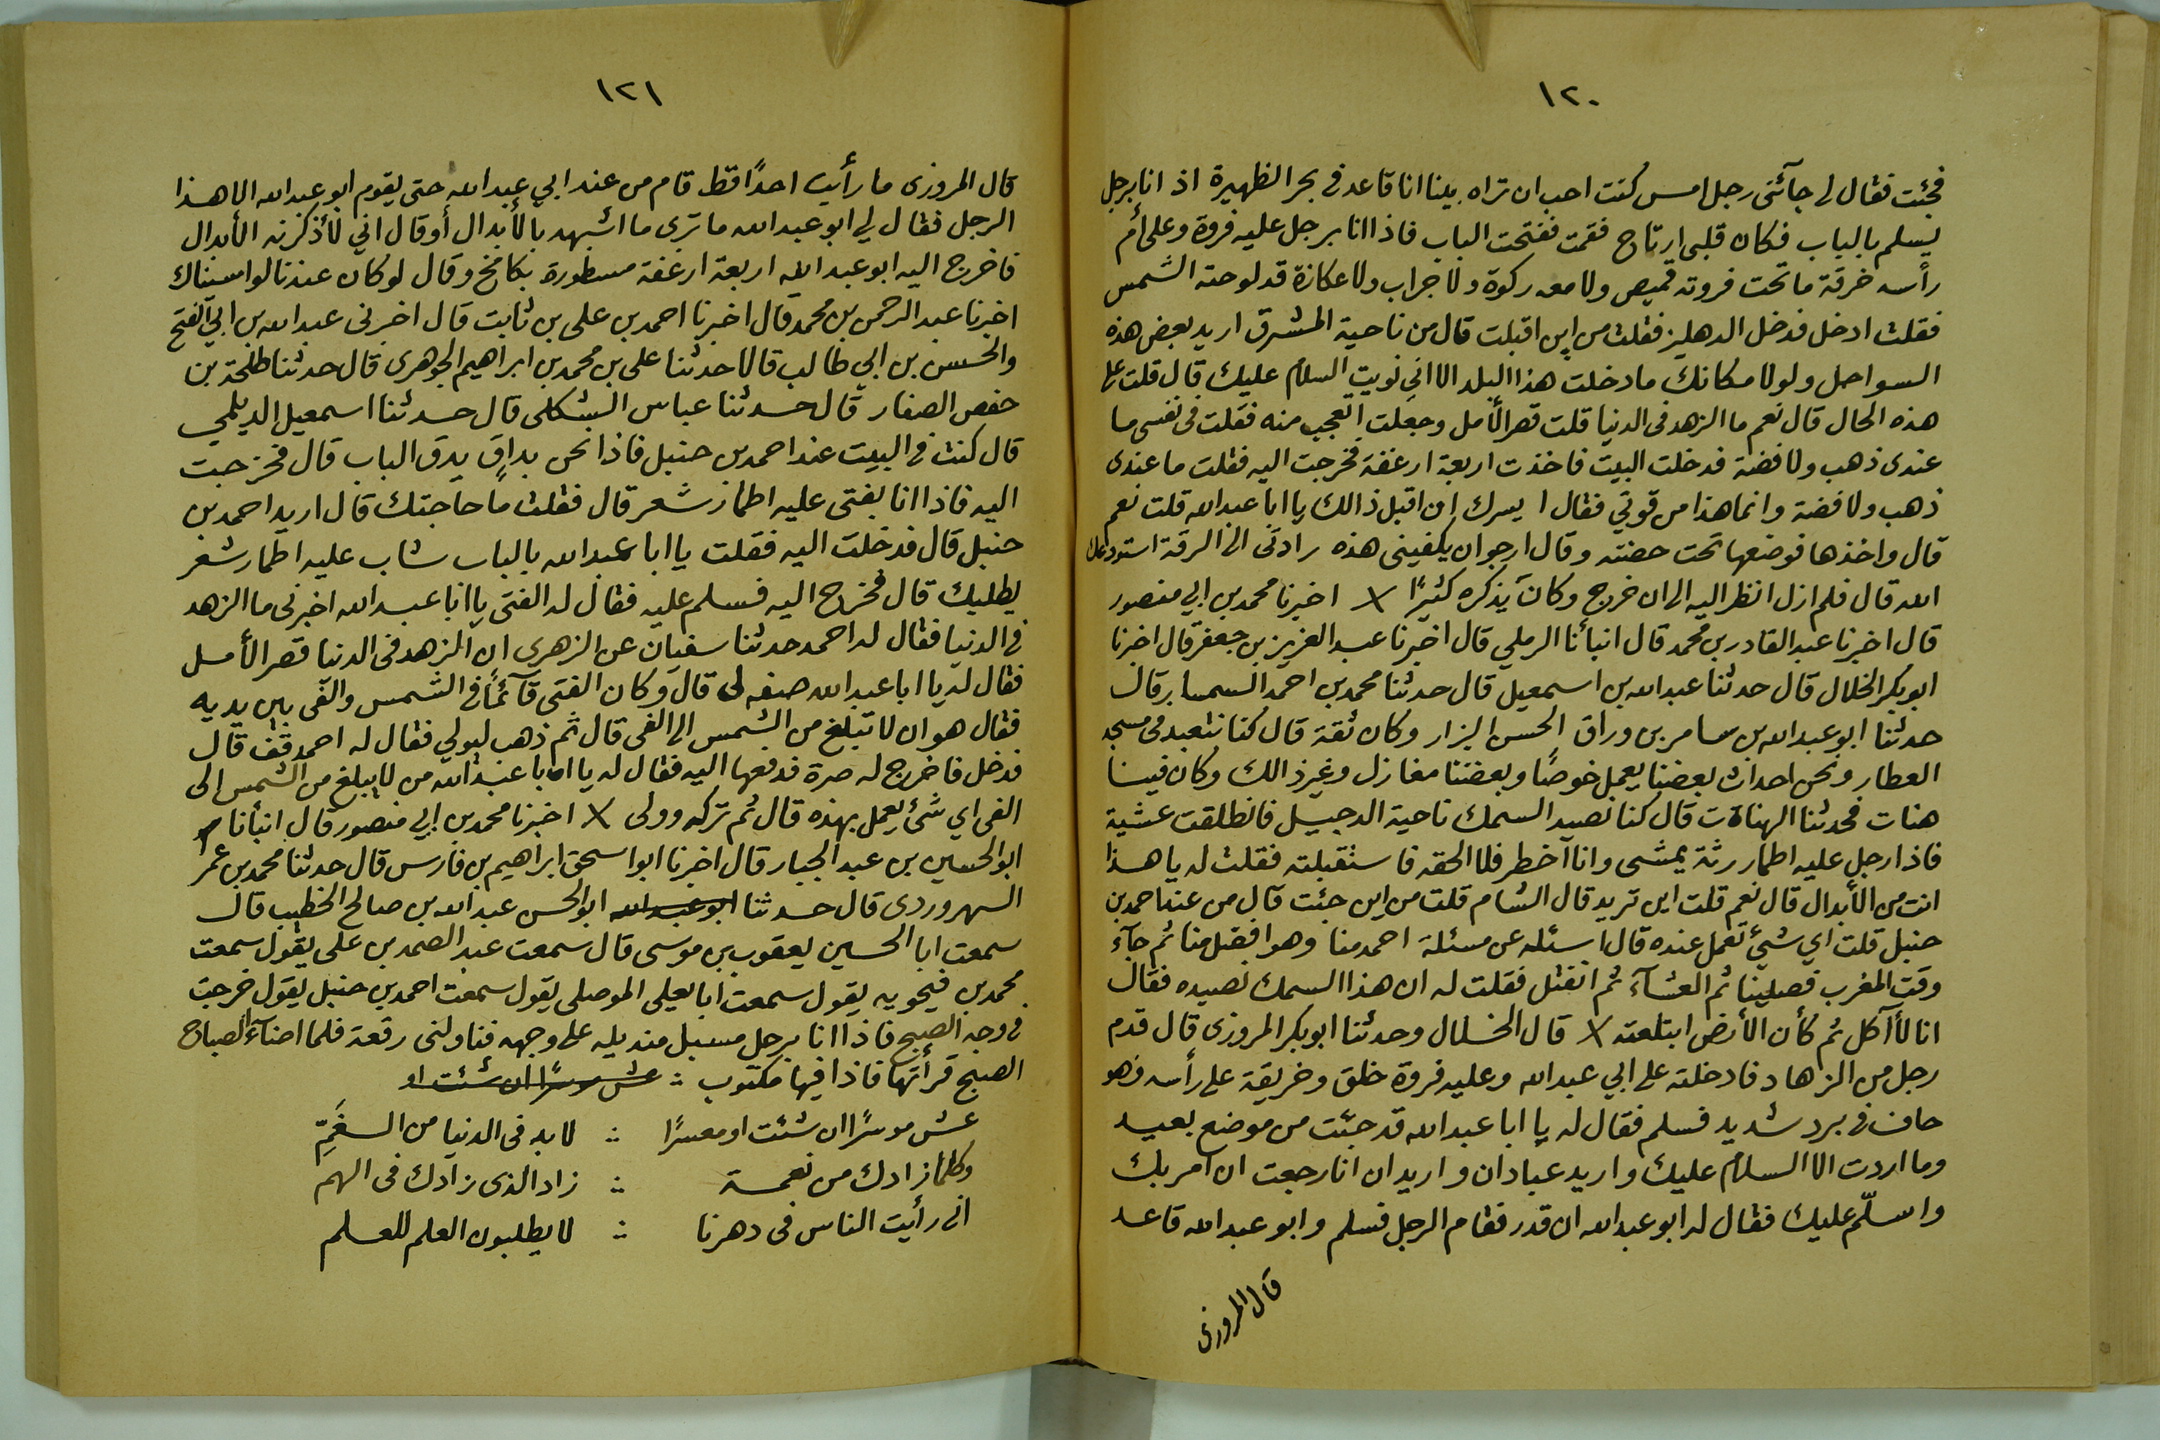 ١٢٠
فجئت فقال لى جآئنى رجل امس كنت احب ان تراه بينا انا قاعد فى بحر الظهيرة اذ انا برجل
يسلم بالباب فكان قلبى ارتاح فقمت ففتحت الباب فاذا انا برجل عليه فروة وعلى أم
رأسه خرقة ما تحت فروته قميص ولا معه ركوة ولا جراب ولا عكازة قد لوحته الشمس
فقلت ادخل فدخل الدهليز فقلت من اين اقبلت قال من ناحية المشرق اريد بعض هذه
السواحل ولولا مكانك ما دخلت هذا البلد الا اني نويت السلام عليك قال قلت على
هذه الحال قال نعم ما الزهد فى الدنيا قلت قصر الأمل وجعلت اتعجب منه فقلت فى نفسى ما
عندى ذهب ولا فضة فدخلت البيت فاخذت اربعة ارغفة فخرجت اليه فقلت ما عندى
ذهب ولا فضة وانما هذا من قوتي فقال ا يسرك ان اقبل ذالك يا ابا عبد الله قلت نعم
قال واخذها فوضعها تحت حضنه وقال ارجو ان يكفينى هذه زادى الى الرقة استودعك
الله قال فلم ازل انظر اليه الى ان خرج وكان يذكره كثيرًا × اخبرنا محمد بن ابي منصور
قال اخبرنا عبد القادر بن محمد قال انبأنا الرملي قال اخبرنا عبد العزيز بن جعفر قال اخبرنا
ابو بكر الخلال قال حدثنا عبد الله بن اسمعيل قال حدثنا محمد بن احمد السمسار قال
حدثنا ابو عبد الله بن سامر بن وراق الحسن البزار وكان ثقة قال كنا نتعبد فى مسجد
العطار ونحن احداث بعضنا يعمل خوصًا وبعضنا مغازل وغير ذالك وكان فينا
هنات فحدثنا الهناة ت قال كنا نصيد السمك ناحية الدجيل فانطلقت عشية
فاذا رجل عليه اطمار رثة يمشى وانا أخطر فلا الحقه فاستقبلته فقلت له يا هذا
انت من الأبدال قال نعم قلت اين تريد قال الشام قلت من اين جئت قال من عند احمد بن
حنبل قلت اي شئ تعمل عنده قال اسئله عن مسئلة احمد منا وهو افضل منا ثم جآء
وقت المغرب فصلينا ثم العشآء ثم انفتل فقلت له ان هذا السمك نصيده فقال
انا لأ آكل ثم كأن الأرض ابتلعته × قال الخلال وحدثنا ابو بكر المروزى قال قدم
رجل من الزهاد فادخلته على ابي عبد الله وعليه فروة خلق وخريقة على رأسه وهو
حاف فى برد شديد فسلم فقال له يا ابا عبد الله قد جئت من موضع بعيد
وما اردت الا السلام عليك واريد عبادان واريد ان انا رجعت ان امر بك
واسلّم عليك فقال له ابو عبد الله ان قدر فقام الرجل فسلم وابو عبد الله قاعد
قال المروزى
١٢١
قال المروزى ما رأيت احدًا قط قام من عند ابي عبد الله حتى يقوم ابو عبد الله الا هذا
الرجل فقال لي ابو عبد الله ما ترى ما اشبهه بالأبدال أو قال اني لأذكر به الأبدال
فاخرج اليه ابو عبد الله اربعة ارغفة مسطورة بكامخ وقال لو كان عندنا لواسيناك
اخبرنا عبد الرحمن بن محمد قال اخبرنا احمد بن على بن ثابت قال اخبرنى عبد الله بن ابي الفتح
والحسن بن ابي طالب قالا حدثنا على بن محمد بن ابراهيم الجوهرى قال حدثنا طلحة بن
حفص الصفار قال حدثنا عباس الشكلى قال حدثنا اسمعيل الديلمي
قال كنت فى البيت عند احمد بن حنبل فاذا نحن بداقٍ يدق الباب قال فخرجت
اليه فاذا انا بفتى عليه اطمار شعر قال فقلت ما حاجتك قال اريد احمد بن
حنبل قال فدخلت اليه فقلت يا ابا عبد الله بالباب شاب عليه اطمار شعر
يطلبك قال فخرج اليه فسلم عليه فقال له الفتى يا ابا عبد الله اخبرنى ما الزهد
فى الدنيا فقال له احمد حدثنا سفيان عن الزهرى ان الزهد فى الدنيا قصر الأمل
فقال له يا ابا عبد الله صفه لى قال وكان الفتى قآئمًا فى الشمس والفى بين يديه
فقال هو ان لا تبلغ من الشمس الى الفى قال ثم ذهب ليولي فقال له احمد قف قال
فدخل فاخرج له صرة فدفعها اليه فقال له يا ابا عبد الله من لا يبلغ من الشمس الى
الفى اي شئ يعمل بهذه قال ثم تركه وولى × اخبرنا محمد بن ابي منصور قال انبأنا
ابو الحسين بن عبد الجبار قال اخبرنا ابو اسحق ابراهيم بن فارس قال حدثنا محمد بن عمر
السهروردى قال حدثنا ابو عبد الله ابو الحسن عبد الله بن صالح الخطيب قال
سمعت ابا الحسين يعقوب بن موسى قال سمعت عبد الصمد بن على يقول سمعت
محمد بن فيحويه يقول سمعت ابا يعلى الموصلى يقول سمعت احمد بن حنبل يقول خرجت
فى وجه الصبح فاذا انا برجل مسبل منديله على وجهه فناولنى رقعة فلما اضآء الصباح
الصبح قرأتها فاذا فيها مكتوب ∴ عش موسرًا ان شئت او
عش موسرًا ان شئت او معسرًا ∴ لا بد فى الدنيا من الغَمِّ
وكلما زادك من نعمة ∴ زاد الذى زادك فى الهم
انى رأيت الناس فى دهرنا ∴ لا يطلبون العلم للعلم